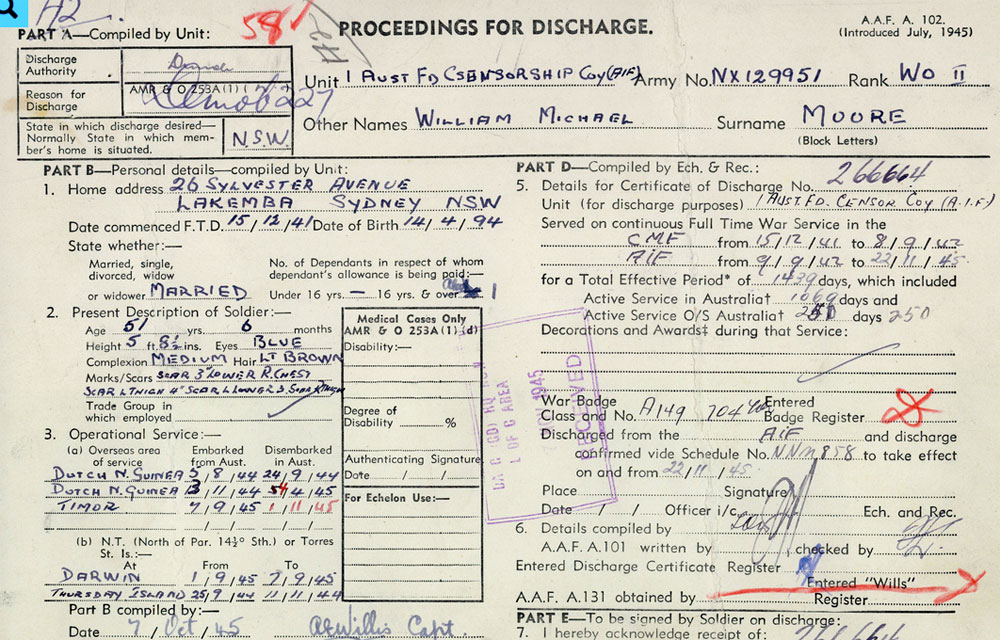 H2
581
H2
PROCEEDINGS FOR DISCHARGE.
A.A.F. A. 102.
(Introduced July, 1945)
PART A—Compiled by Unit:
Discharge Authority
AMR & O 253A(1) ( )
Reason for Discharge
Demob 227
State in which discharge desired—Normally State in which member's home is situated.
N.S.W.
Unit 1 AUST FD CSENSORSHIP COY (AIF) Army No. NX129951 Rank WO II
Other Names WILLIAM MICHAEL Surname MOORE
(Block Letters)
PART B—Personal details—compiled by Unit:
1. Home address 26 SYLVESTER AVENUE
LAKEMBA SYDNEY NSW
Date commenced F.T.D. 15/12/41 Date of Birth 14/4/94
State whether:—
Married, single, divorced, widow or widower MARRIED
No. of Dependants in respect of whom dependant's allowance is being paid:—
Under 16 yrs. — 16 yrs. & over 1
2. Present Description of Soldier:—
Age 51 yrs. 6 months
Height 5 ft. 8½ ins. Eyes BLUE
Complexion MEDIUM Hair LT BROWN
Marks/Scars SCAR 3" LOWER R. CHEST
SCAR L THIGH 4" SCAR L LOWER 3, SCAR R THIGH
Trade Group in which employed
Medical Cases Only
AMR & O 253A(1)(d)
Disability:—
Degree of Disability %
Authenticating Signature
Date / /
For Echelon Use:—
3. Operational Service:—
(a) Overseas area of service
Embarked from Aust.
Disembarked in Aust.
DUTCH N. GUINEA 5/8/44 24/9/44
DUTCH N. GUINEA 13/11/44 4/45
TIMOR 7/9/45 1/11/45
/ / / /
(b) N.T. (North of Par. 14½° Sth.) or Torres St. Is.:—
At From To
DARWIN 1/9/45 7/9/45
THURSDAY ISLAND 25/9/44 11/11/44
Part B compiled by:—
Date 7 Oct 45 Willis Capt.
PART D—Compiled by Ech. & Rec.:
5. Details for Certificate of Discharge No. 266664
Unit (for discharge purposes) 1 AUST FD. CENSOR COY (A.I.F)
Served on continuous Full Time War Service in the
CMF from 15/12/41 to 8/9/42
AIF from 9/9/42 to 22/11/45
for a Total Effective Period* of 1439 days, which included
Active Service in Australia† 1069 days and
Active Service O/S Australia† days 250
Decorations and Awards‡ during that Service:
War Badge Class and No. A149 704 Entered Badge Register
Discharged from the AIF and discharge
confirmed vide Schedule No. NNM858 to take effect
on and from 22/11/45
Place Signature
Date / / Officer i/c Ech. and Rec.
RECEIVED
L OF C AREA
1945
6. Details compiled by
A.A.F. A.101 written by , checked by
Entered Discharge Certificate Register
Entered "Wills"
A.A.F. A.131 obtained by Register
PART E—To be signed by Soldier on discharge:
7. I hereby acknowledge receipt of: